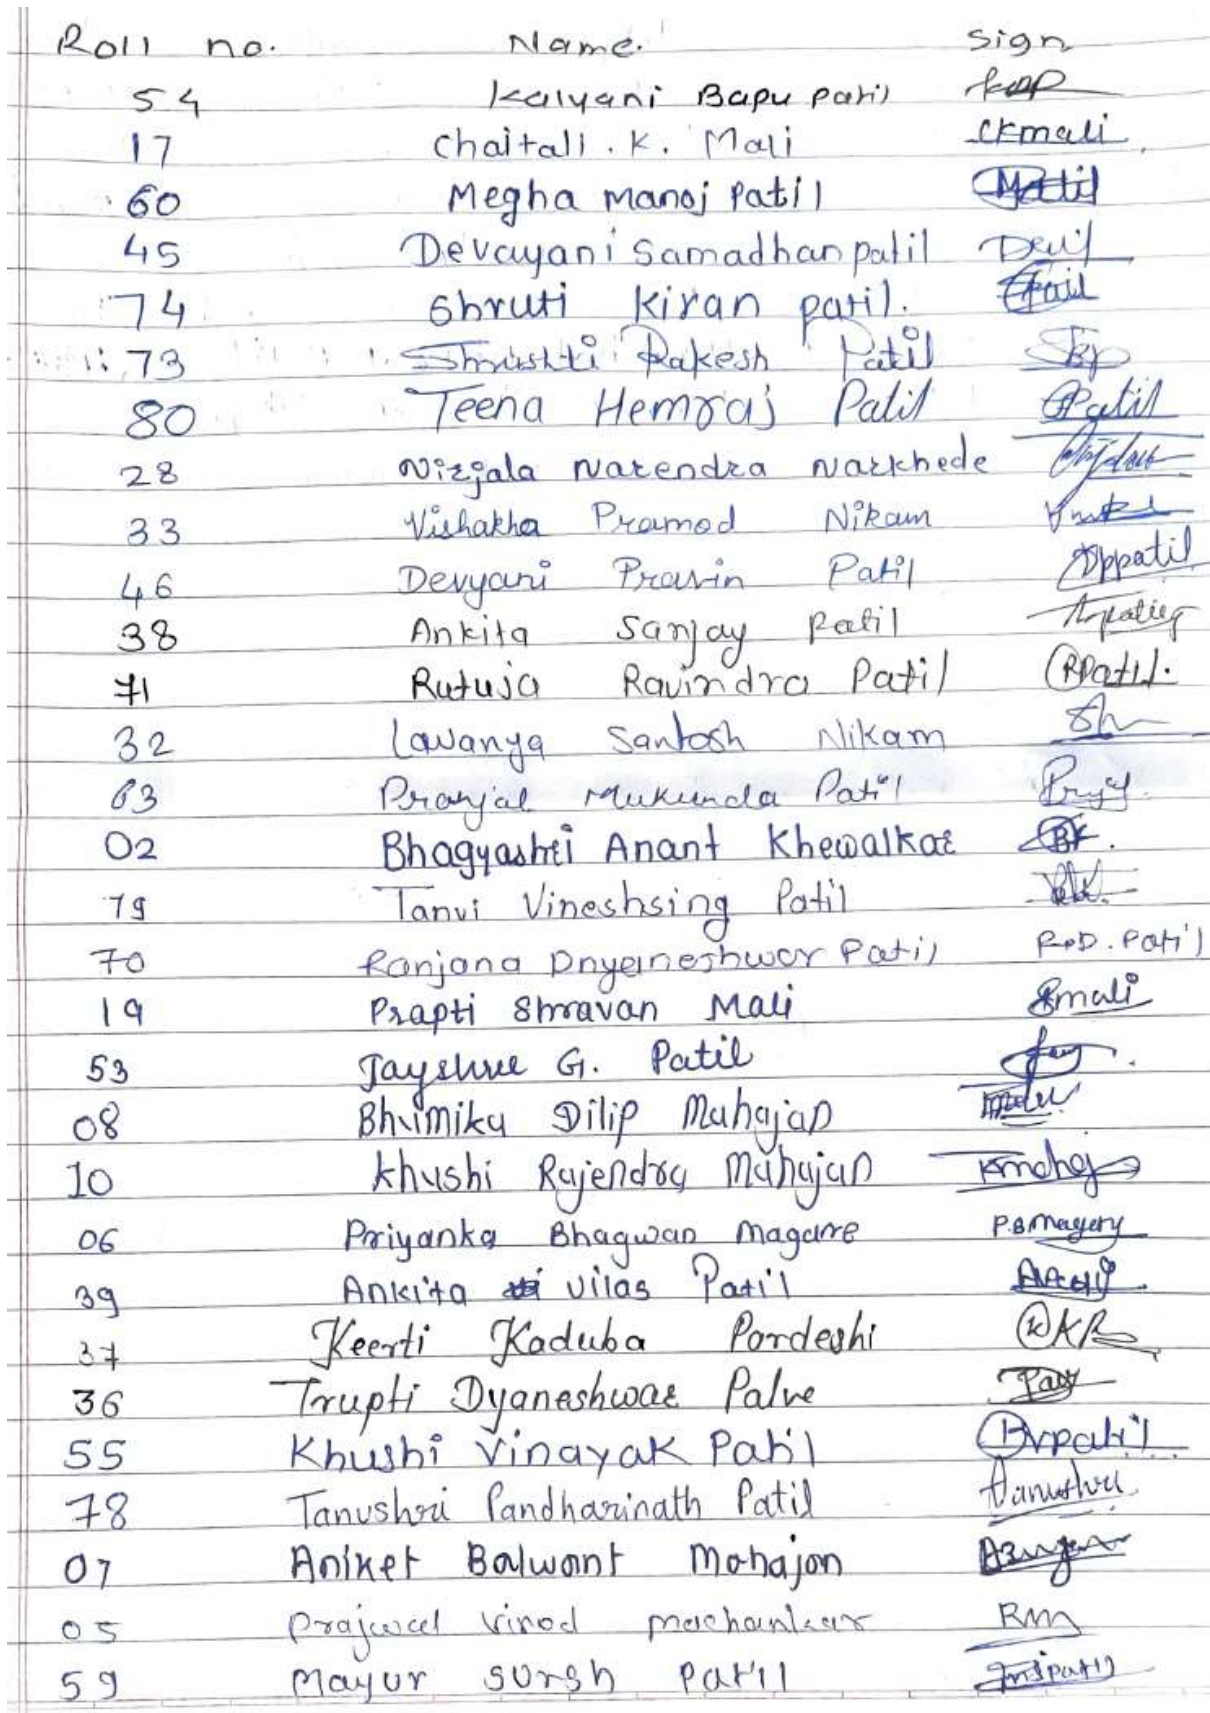 Roll no. Name. Sign
54 Kalyani Bapu patil
17 Chaitali . K. Mali ckmali
60 Megha manoj Patil
45 Devayani Samadhan patil
74 Shruti Kiran patil.
73 Shrushti Rakesh Patil
80 Teena Hemraj Patil Patil
28 Nirjala Narendra Narkhede
33 Vishakha Pramod Nikam
46 Devyani Pravin Patil Dppatil
38 Ankita Sanjay Patil
71 Rutuja Ravindra Patil RPatil.
32 Lavanya Santosh Nikam
63 Pranjal Mukunda Patil
02 Bhagyashri Anant Khewalkar BK.
79 Tanvi Vineshsing Patil
70 Ranjana Dnyeineshwor Patil R.D. Patil
19 Prapti Shravan Mali Smali
53 Jayshree G. Patil
08 Bhumika Dilip Mahajan
10 Khushi Rajendra Mahajan
06 Priyanka Bhagwan Magarre
39 Ankita Vilas Patil
37 Keerti Kaduba Pardeshi
36 Trupti Dyaneshwar Palve
55 Khushi Vinayak Patil
78 Tanushri Pandharinath Patil Tanushri
07 Aniket Balwant Mahajan
05 Prajwal Vinod machankar
59 Mayur Sursh Patil